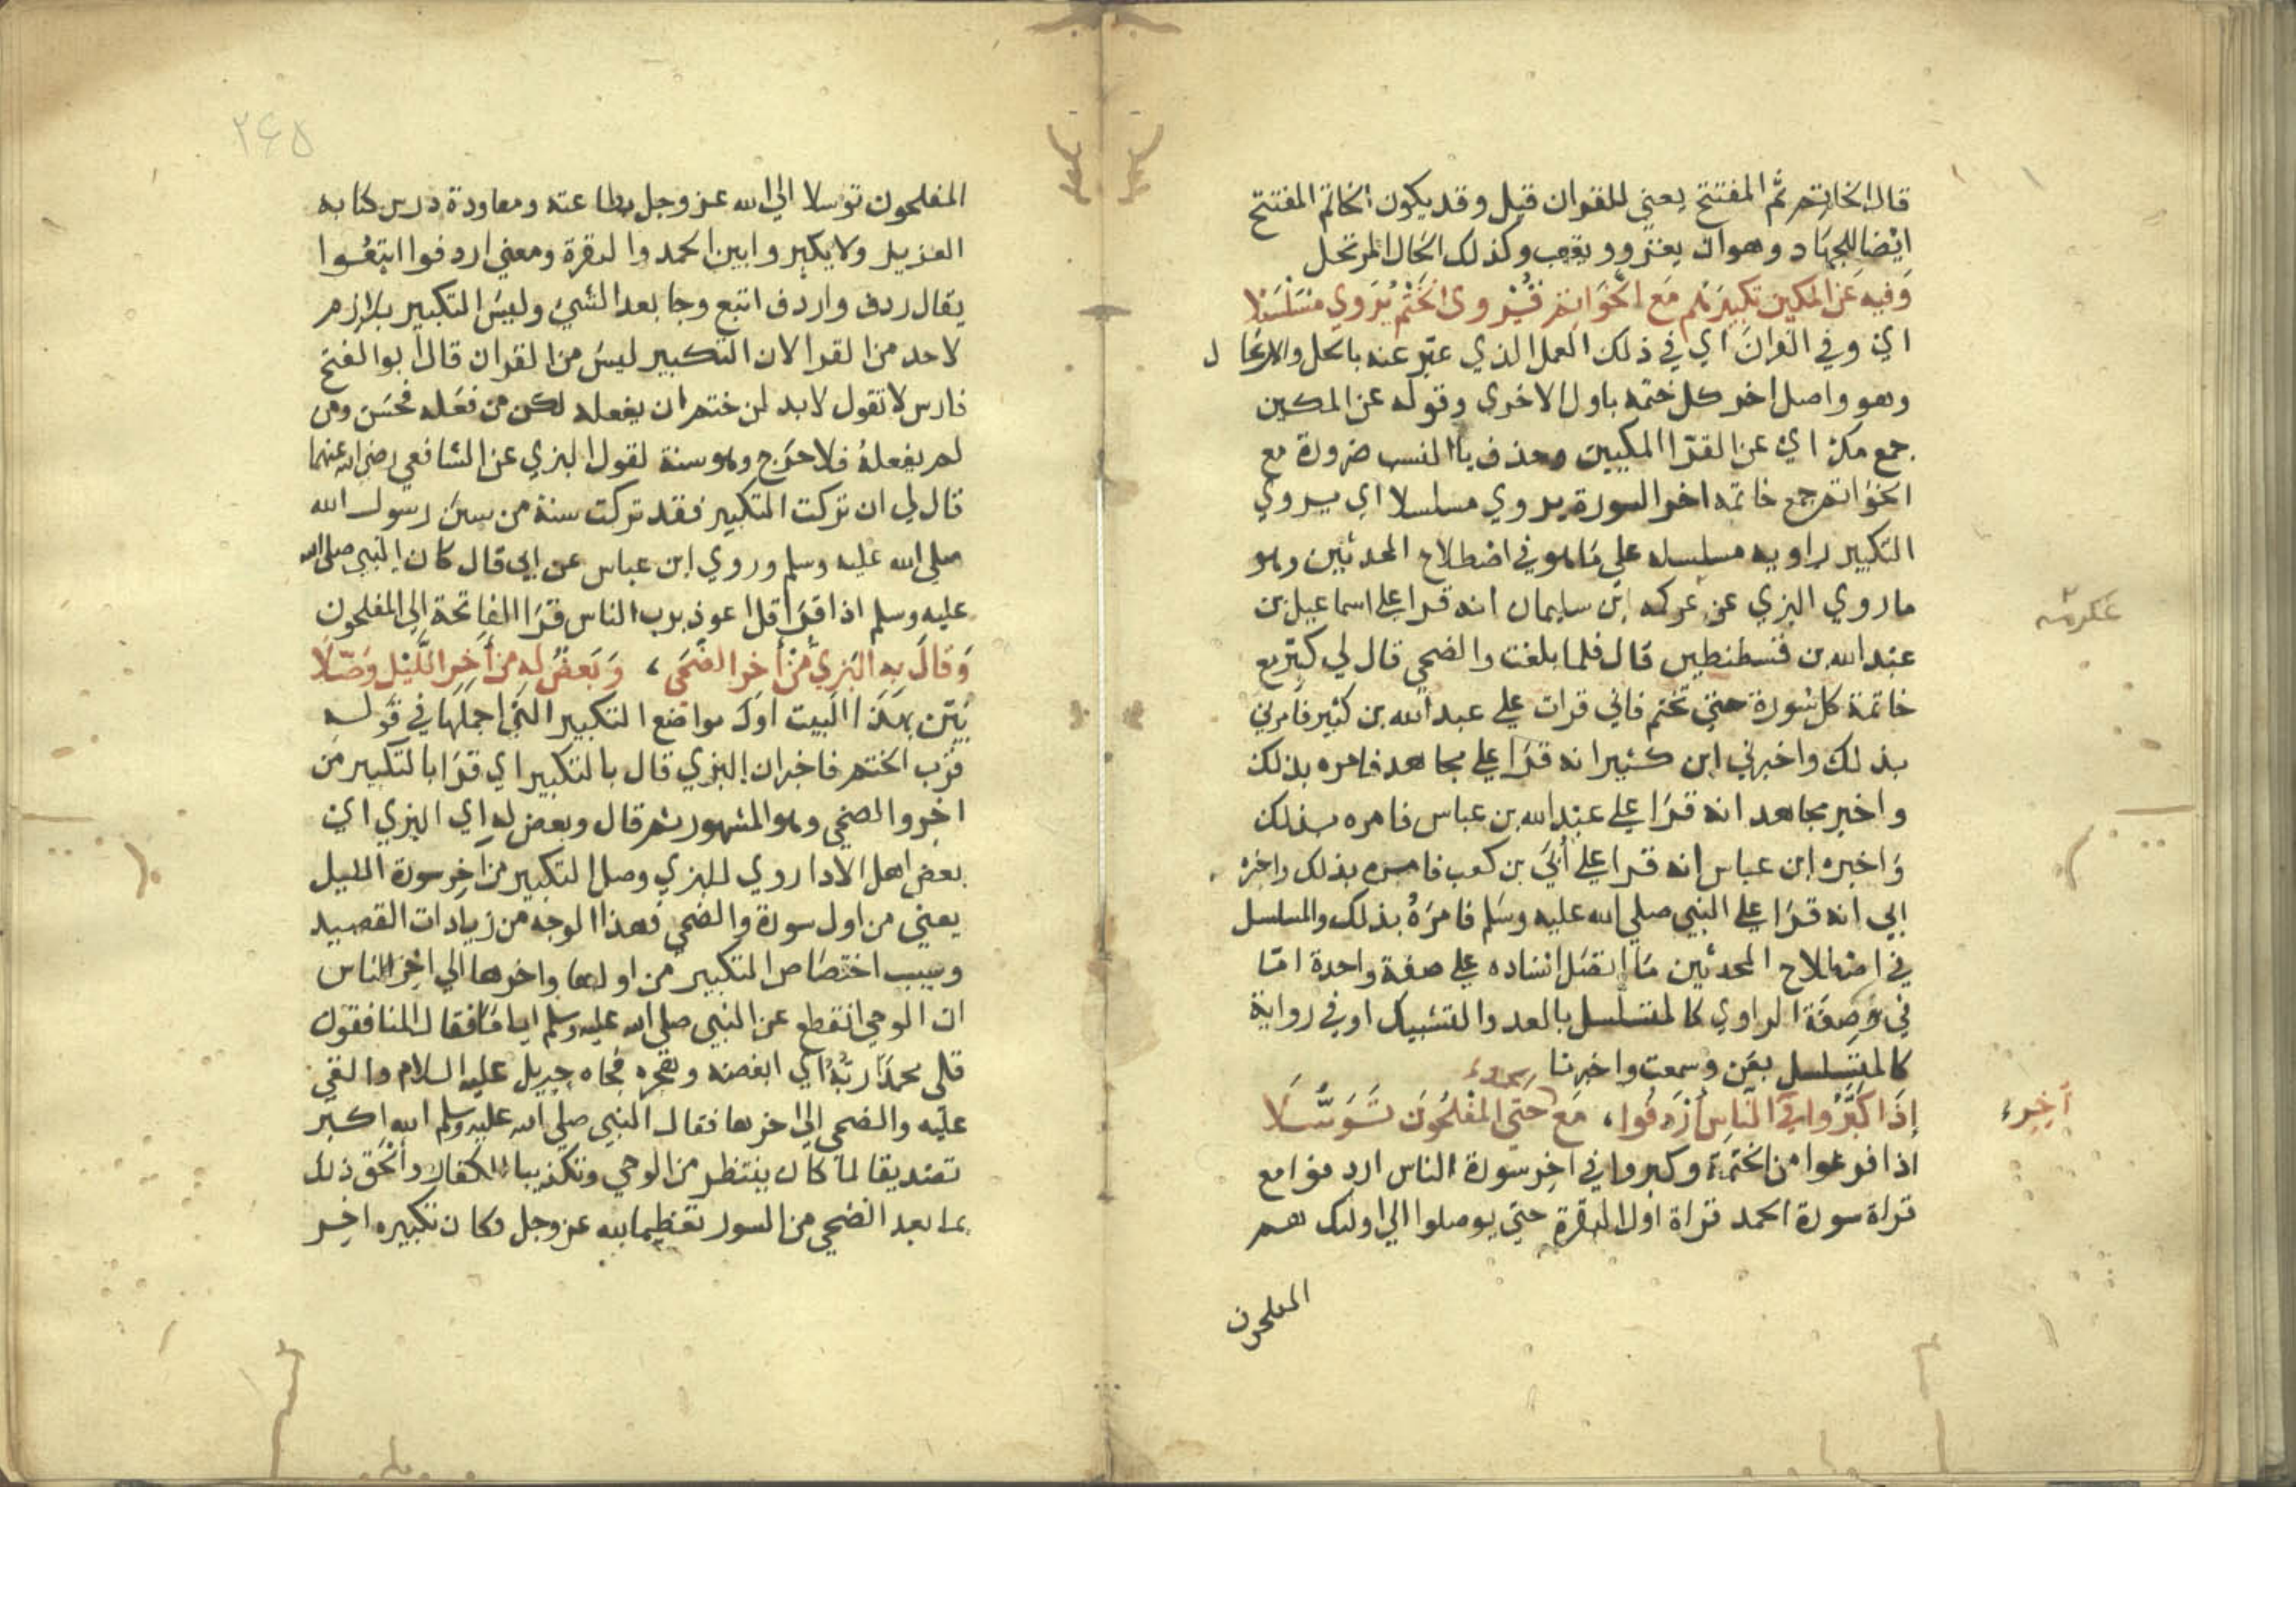 قال الخاتم ثم المفتتح يعني للقران قيل وقد يكون الخاتم المفتتح
ايضا للجهاد وهوان يغزو ويعقب وكذلك الحال المرتحل
وَفِيهِ عَنِ المكين تكبيرهُم مَع الخَوَاتِم قُرْب الختم يُروي مسَلْسَلا
اي وفي القران اي في ذلك العمل الذي عبّر عنه بالحل والارتحال
وهو واصل اخر كل ختمه باول الاخري وقوله عن المكين
جمع مكٍ اي عن القرّا المكيين وحذف يا النسب ضرورة مع
الخواتم جمع خاتمه اخر السورة يروي مسلسلا اي يروي
التكبير راويه مسلسله علي ما هو في اصطلاح المحدثين وهو
ما روي البزي عن عركه ابن سليمان انه قرا علي اسماعيل بن
عكرمه
عبد الله بن قسطنطين قال فلما بلغت والضحي قال لي كبّر مع
خاتمة كل سورة حتي تختم فاني قرات علي عبد الله بن كثير فامرني
بذلك واخبرني ابن كثير انه قرا علي مجاهد فامره بذلك
واخبر مجاهد انه قرا علي عبد الله بن عباس فامره بذلك
وَاخبره ابن عباس انه قرا علي أُبيّ بن كعب فامره بذلك واخبره
ابي انه قرا علي النبي صلي الله عليه وسلم فامرهُ بذلك والمسلسل
في اصطلاح المحدثين ما اتصل اسناده علي صفة واحدة امّا
في صفة الراوي كالمتسلسل بالعد والتشبيك او في رواية
كالمتسلسل بعَن وسمعت واخبرنا
إذا كَبَّرُوا في آخِر النَّاسِ أَرْدَفُوا، مَع الحمد حَتي المفلحُون تَوَسُّلَا
اذا فرغوا من الختمة وكبروا في اخِر سورة الناس اردفوا مع
قراة سورة الحمد قراة اول البقرة حتي يوصلوا الي اولئك هم
المفلحون
٢٤٥
المفلحون توسلا الي الله عز وجل بطاعته ومعاودة درس كتابه
العزيز ولا يكبروا بين الحمد والبقرة ومعني اردفوا اتبعُوا
يقال ردف واردف اتبع وجا بعد الشي وليسَ التكبير بلازم
لاحد من القرا لان التكبير ليسَ من القران قال ابو الفتح
فارس لا نقول لا بد لمن ختم ان يفعله لكن من فعَله فحسَن ومن
لم يفعلهُ فلا حَرج وهو سنة لقول البزي عن الشافعي رضي الله عنهما
قال لي ان تركت التكبير فقد تركت سنة من سنن رسول الله
صلي الله عليه وسلم وروي ابن عباس عن ابي قال كان النبي صلي الله
عليه وسلم اذا قرَا قل اعوذ برب الناس قرَا الفاتحة الي المفلحون
وَقالَ بِهِ البَزيُّ مْن آخِر الضَّحَي، وَبَعضٌ لهِ مِن آخِر اللَّيْل وَصّلَا
بَيّن بهَذا البَيت اولَ مواضع التكبير التي اجملَها في قوله
قرُب الختم فاخبر ان البزي قال بالتكبير اي قرَا بالتكبير من
اخِر والضحي وهو المشهور ثم قال وبعض له اي البزي اي
بعض اهل الادا روي للبزي وصل التكبير من اخِر سورة الليل
يعني من اول سورة والضحي فهذا الوجه من زيادات القصيد
وسبب اختصَاص التكبير من اولها واخرها الي اخِر الناس
ان الوحي انقطع عن النبي صلي الله عليه وسلم اياما فقال المنافقون
قلي محمدًا ربُّهُ اي ابغضه وهجره فجاه جبريل عليه السلام والقي
عليه والضحي الي اخرها فقال النبي صلي الله عليه وسلم الله اكبر
تصديقا لما كان ينتظر من الوحي وتكذيبا للكفار والحَق ذلك
بما بعد الضحي من السور تعظيما لله عز وجل فكان تكبيره اخِر